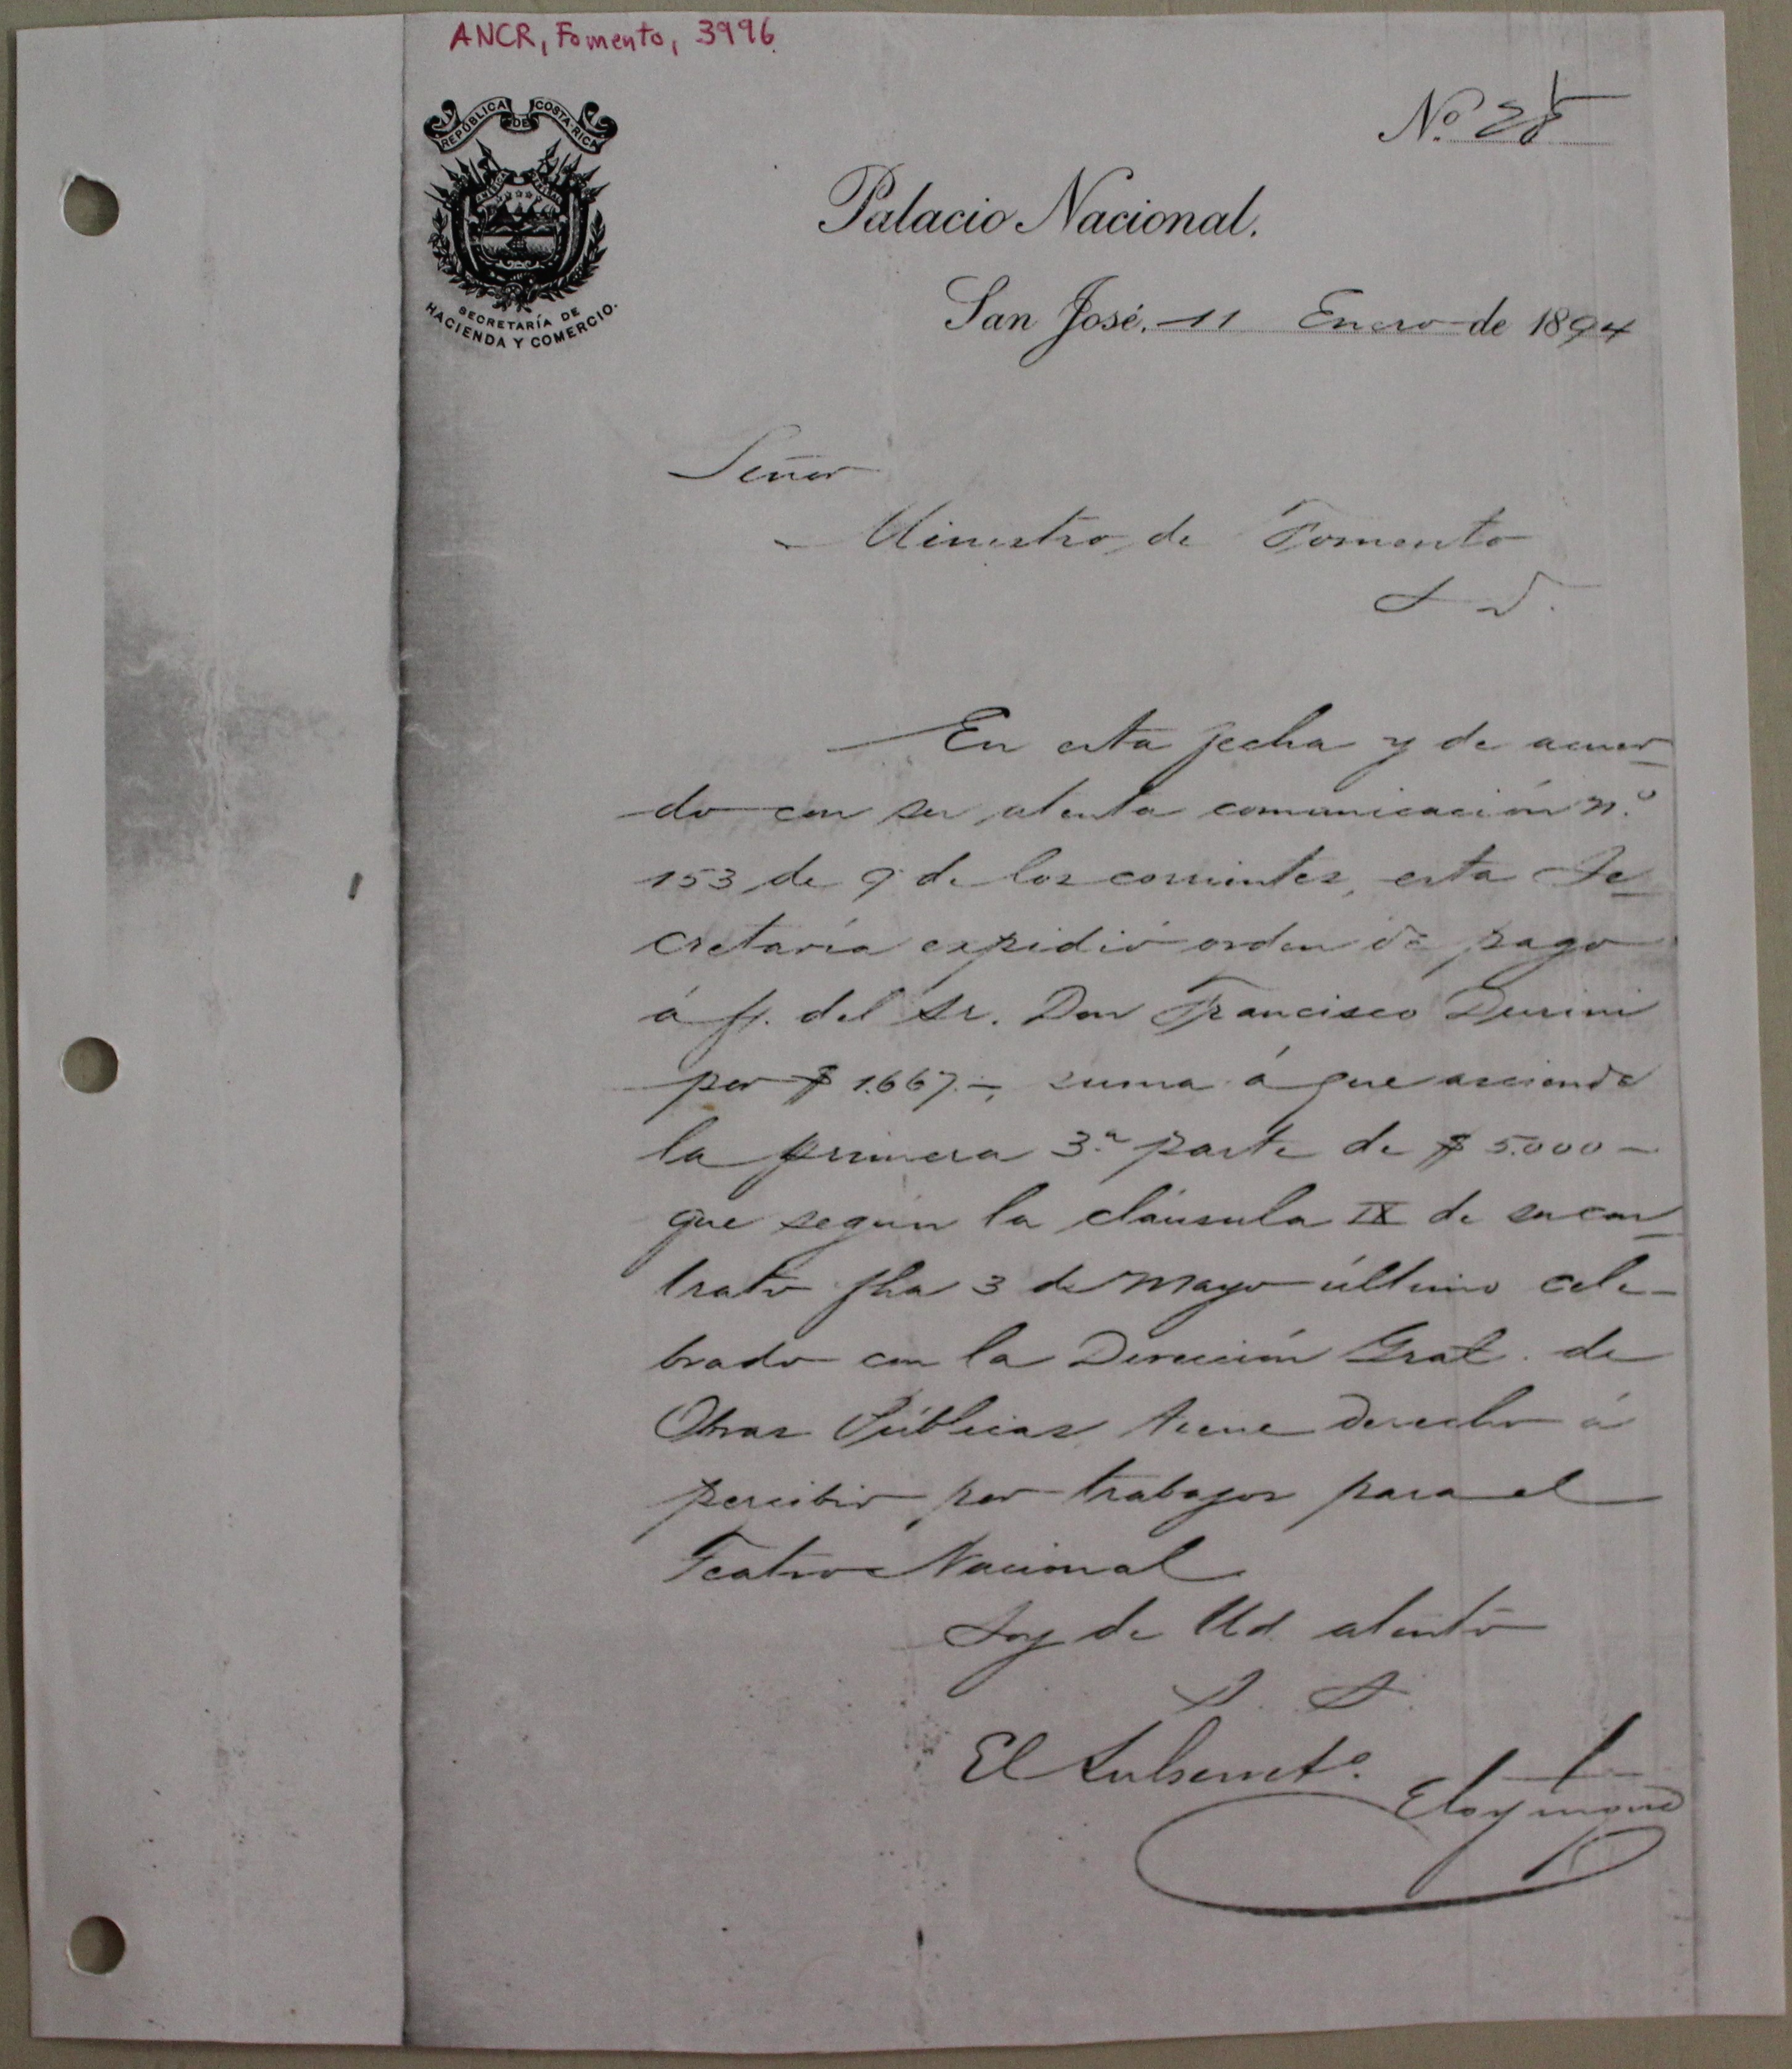 ANCR, Fomento, 3996
REPÚBLICA DE COSTA RICA
AMÉRICA CENTRAL
SECRETARÍA DE
HACIENDA Y COMERCIO.
Nº
Palacio Nacional.
San José, 11 Enero de 1894
Señor
Ministro de Fomento
S. D.
En esta fecha y de acuer
do con su atenta comunicación n.º
153 de 9 de los corrientes, esta Se
cretaría expidió orden de pago
á f. del Sr. Don Francisco Durini
por $ 1.667.-, suma á que asciende
la primera 3.ª parte de $ 5.000 -
que según la cláusula IX de su con
trato fha 3 de Mayo último cele-
brado con la Dirección Gral. de
Obras Públicas tiene derecho á
percibir por trabajos para el
Teatro Nacional
Soy de Ud. atento
S. S.
El Subsecretº.
Eloy